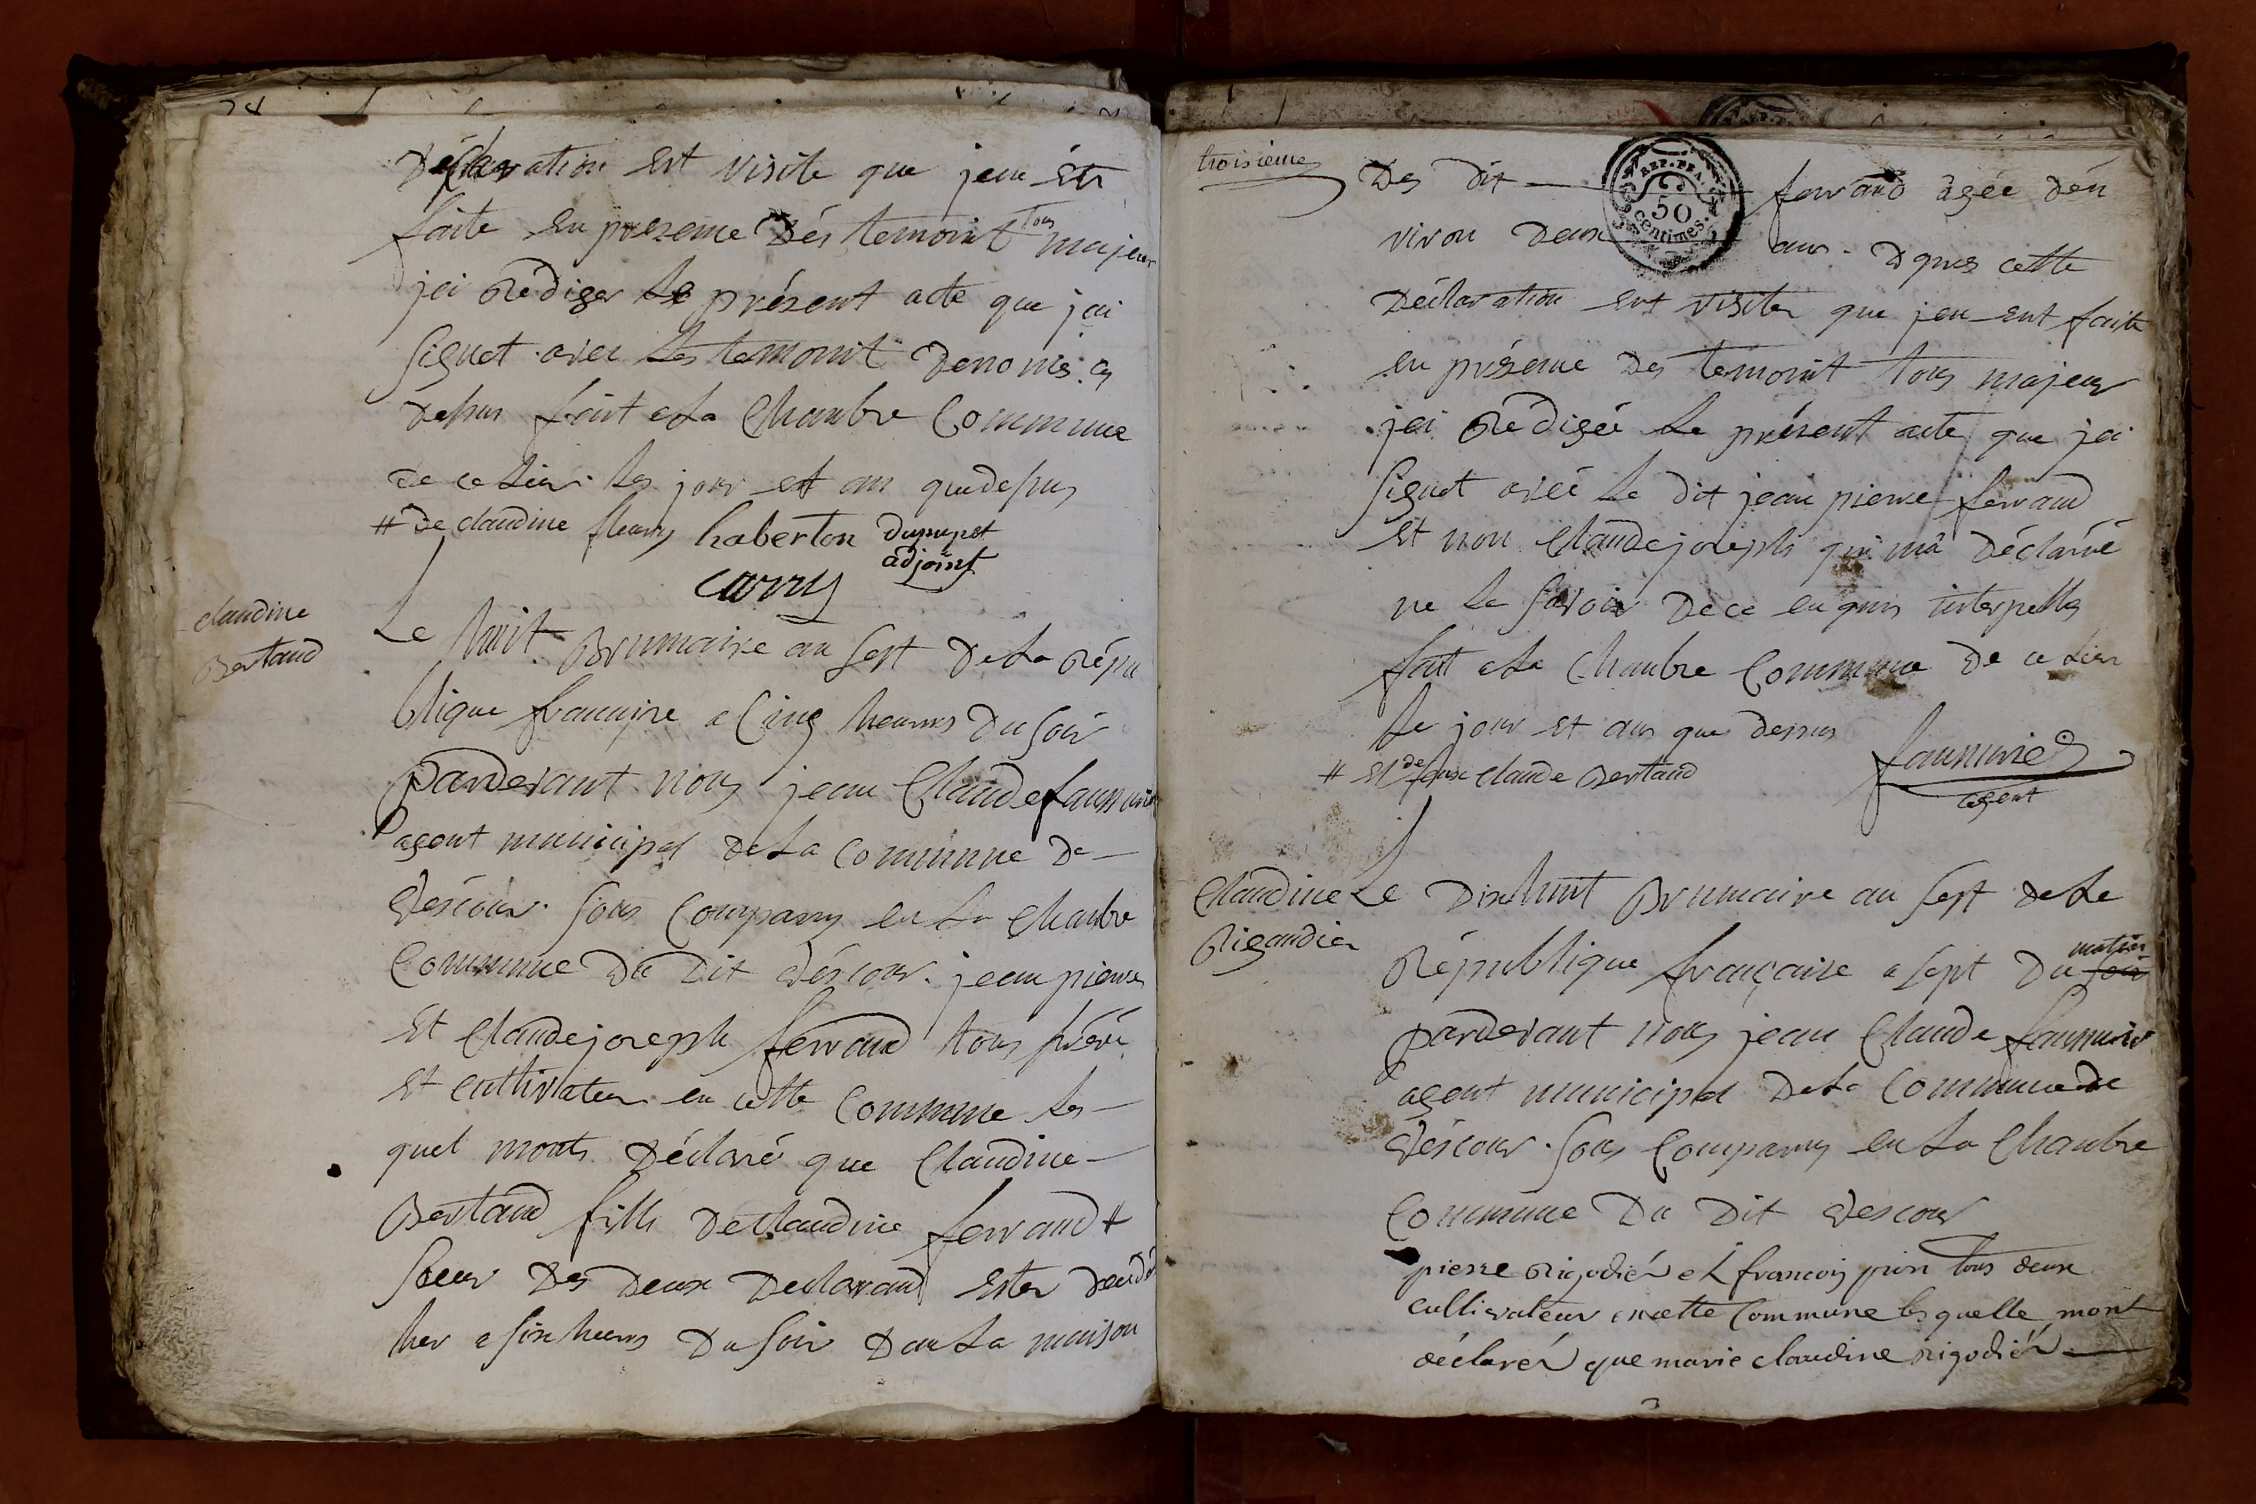 Déclaration est visite que jeu ets
faite en presence dés temoint tous majeur
jei Rédiger Le présent acte que jai
signet avec Les temoint denomés cy
desus fait a La Chambre Commune
de ce Lieu Les jour et an que desus
# de claudine fleury haberton dupupet
adjoint
carry
claudine
Bertaud
Le huit Brumaire an sept de La Répu
blique francaise a Cinq heures du soir
Pardevant nous jean Claude faunuire
agent municipal de La Commune de
descour sous Comparus en La Chambre
Commune du dit déscour jean pierre
et Claude joseph ferraud tous fréré
et cultivateur en cette Commune Les
quel monts déclaré que Claudine
Bertaud fille de Claudine ferraud #
soeur des deux declarand ester décédé
hier a six heures du soir dans La maison
troisième
des dit ferraud agée dén
REP. FRA.
50
centimes
viron deux ans. Dpres cette
déclaration ert visiter que jeu ent faite
en présence des temoint tous majeur
jei Rédigée Le présent acte que jei
signet avec Le dit jean pierre ferraud
et non Claude joseph qui ma déclaréé
ne Le savoir de ce enquis interpelle
fait a La Chambre Commune de ce Lieu
Le jour et an que dessus
# et de feux Claude Bertaud
faunuire
agent
Claudine
Rigaudier
Le dixhuit Brumaire an sept de La
République française a sept du soir matin
pardevant nous jean Claude faunuire
agent municipal de La Commune de
déscour sous Comparus en La Chambre
Commune du dit descour
pierre Rigodiér et francois pion tous deux
cultivateur encette Commune lesquelle mont
déclarér que marie claudine Rigodiér